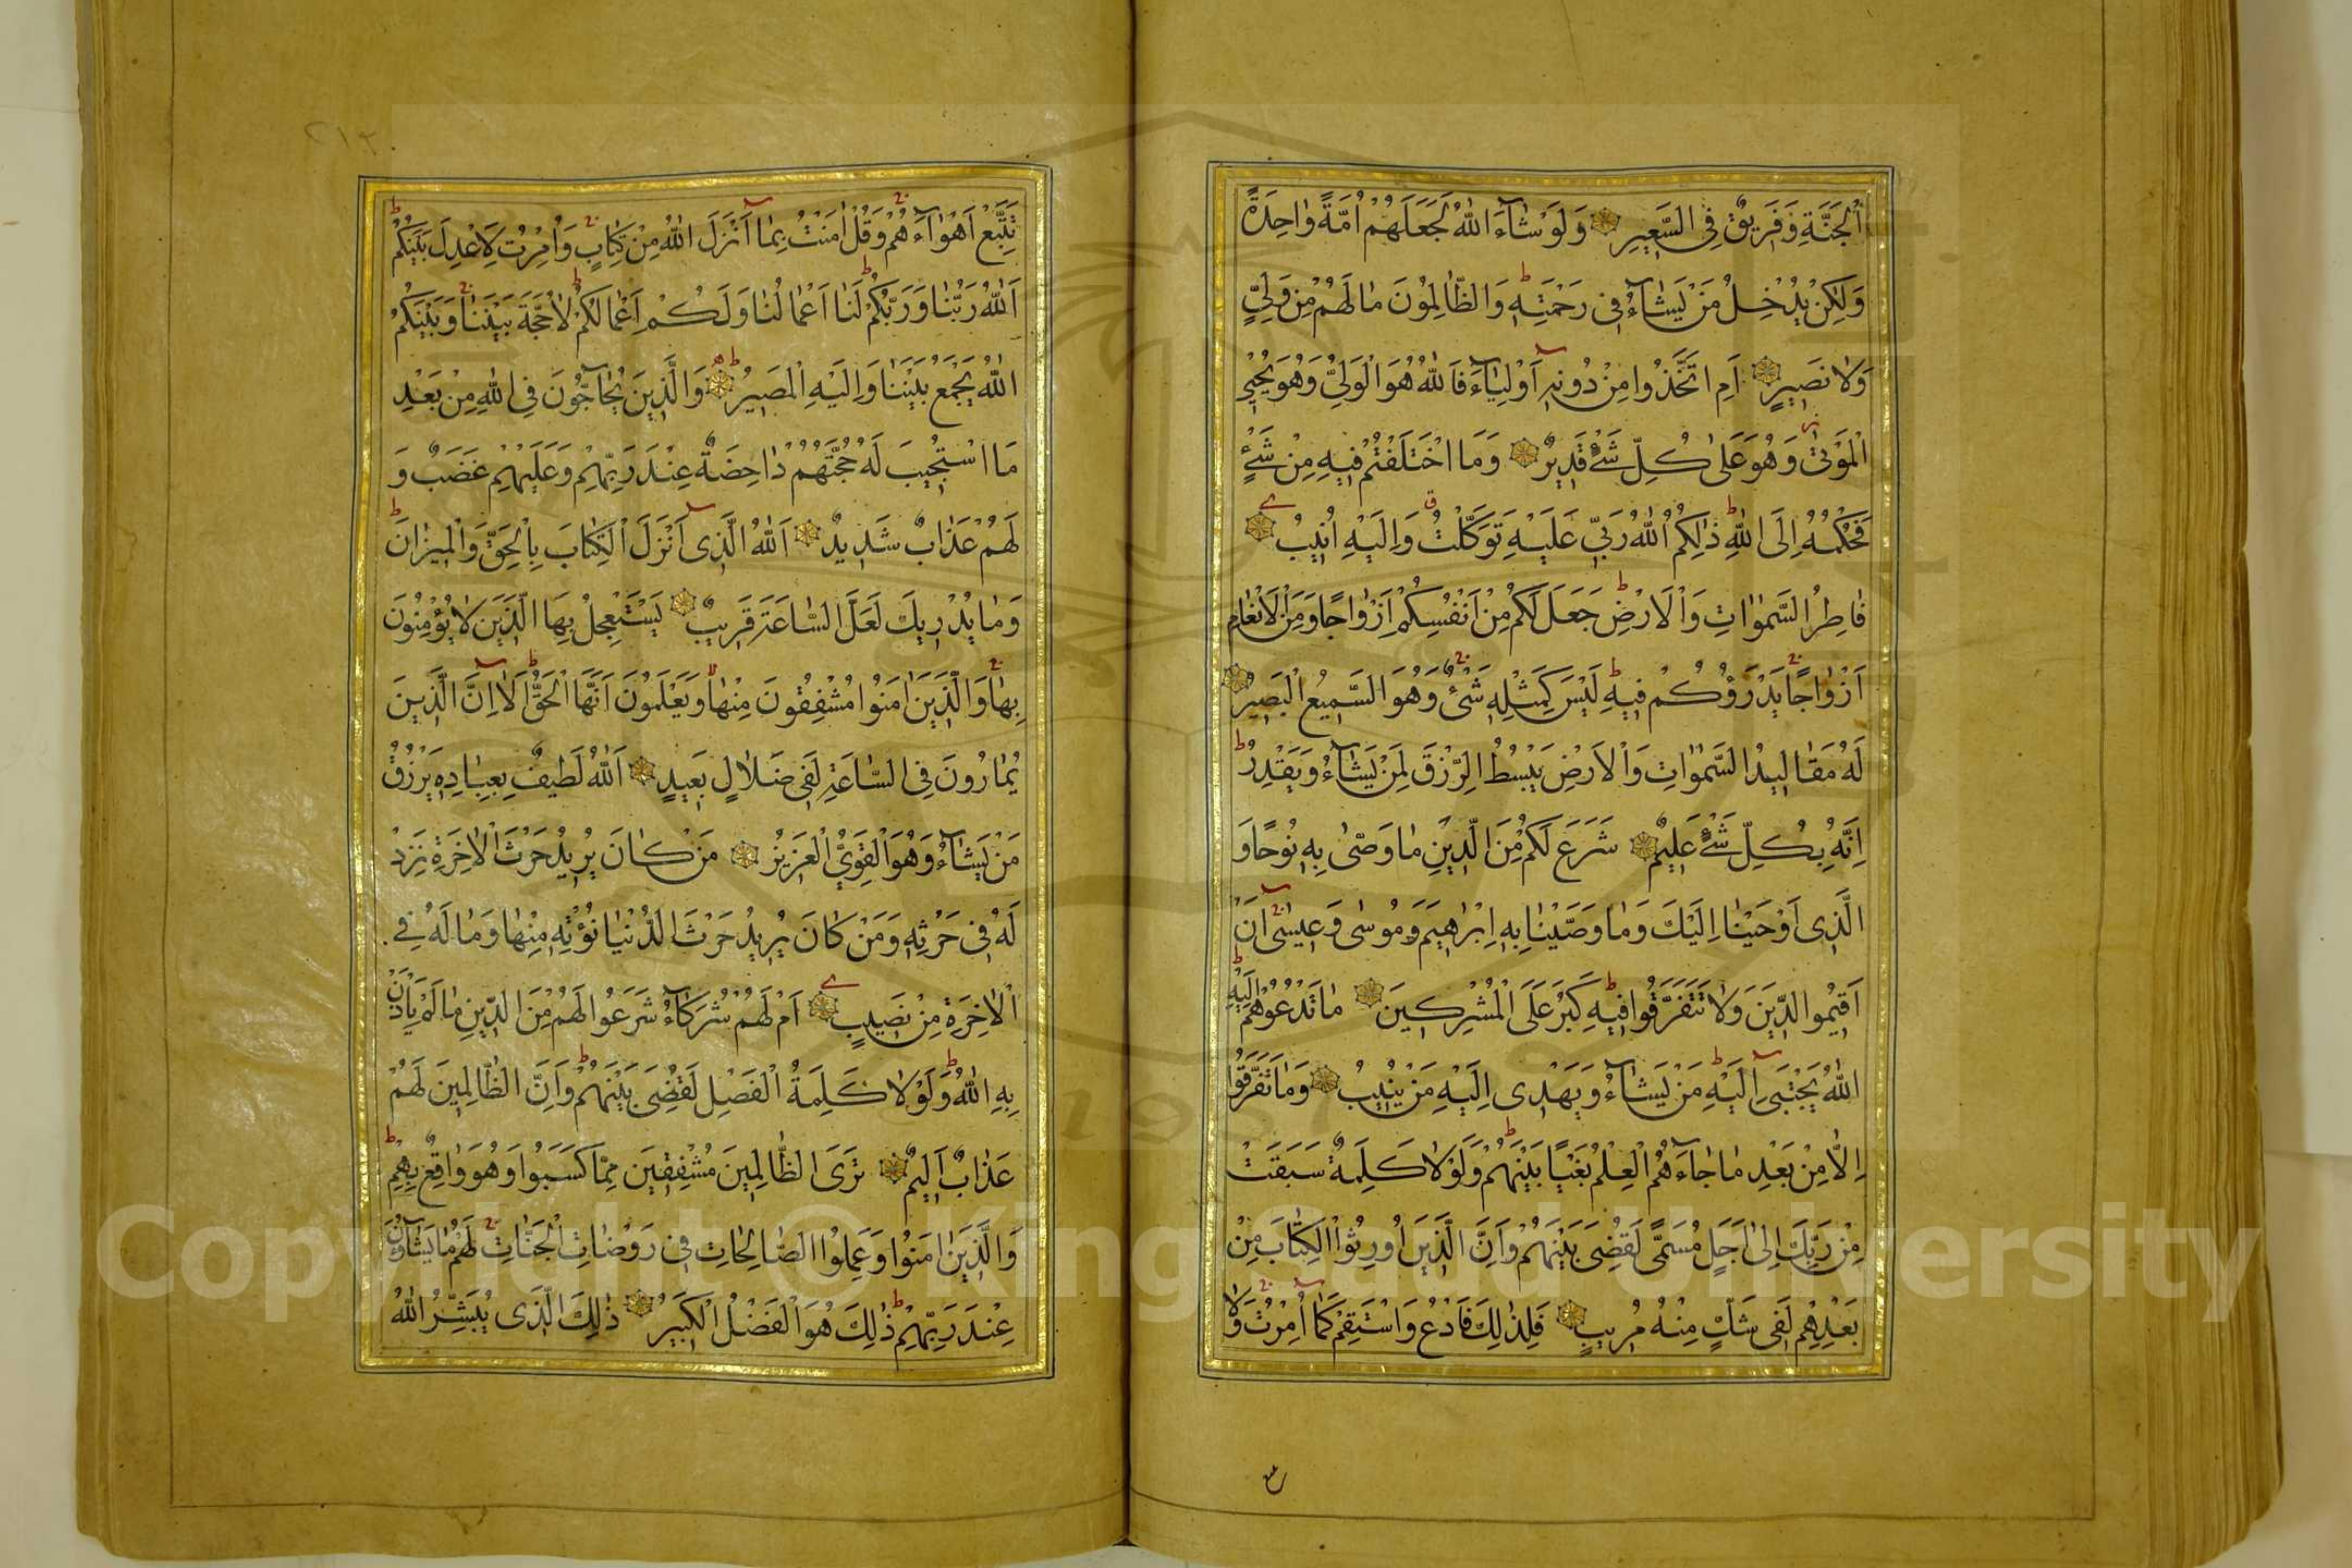 اَلْجَنَّةِ وَفَرِيقٌ فِي السَّعِيرِ وَلَوْ شَآءَ اللّٰهُ لَجَعَلَهُمْ اُمَّةً وَاحِدَةً
وَلٰكِنْ يُدْخِلُ مَنْ يَشَآءُ فِى رَحْمَتِهِ وَالظَّالِمُونَ مَا لَهُمْ مِنْ وَلِيٍّ
وَلَا نَصِيرٍ اَمِ اتَّخَذُوا مِنْ دُونِهِ اَوْلِيَآءَ فَاللّٰهُ هُوَ الْوَلِيُّ وَهُوَ يُحْيِي
الْمَوْتٰى وَهُوَ عَلٰى كُلِّ شَىْءٍ قَدِيرٌ وَمَا اخْتَلَفْتُمْ فِيهِ مِنْ شَىْءٍ
فَحُكْمُهُ اِلَى اللّٰهِ ذٰلِكُمُ اللّٰهُ رَبِّي عَلَيْهِ تَوَكَّلْتُ وَاِلَيْهِ اُنِيبُ
فَاطِرُ السَّمٰوَاتِ وَالْاَرْضِ جَعَلَ لَكُمْ مِنْ اَنْفُسِكُمْ اَزْوَاجًا وَمِنَ الْاَنْعَامِ
اَزْوَاجًا يَذْرَؤُكُمْ فِيهِ لَيْسَ كَمِثْلِهِ شَىْءٌ وَهُوَ السَّمِيعُ الْبَصِيرُ
لَهُ مَقَالِيدُ السَّمٰوَاتِ وَالْاَرْضِ يَبْسُطُ الرِّزْقَ لِمَنْ يَشَآءُ وَيَقْدِرُ
اِنَّهُ بِكُلِّ شَىْءٍ عَلِيمٌ شَرَعَ لَكُمْ مِنَ الدِّينِ مَا وَصّٰى بِهِ نُوحًا وَ
الَّذِى اَوْحَيْنَا اِلَيْكَ وَمَا وَصَّيْنَا بِهِ اِبْرٰهِيمَ وَمُوسٰى وَعِيسٰى اَنْ
اَقِيمُوا الدِّينَ وَلَا تَتَفَرَّقُوا فِيهِ كَبُرَ عَلَى الْمُشْرِكِينَ مَا تَدْعُوهُمْ اِلَيْهِ
اللّٰهُ يَجْتَبِى اِلَيْهِ مَنْ يَشَآءُ وَيَهْدِى اِلَيْهِ مَنْ يُنِيبُ وَمَا تَفَرَّقُوا
اِلَّا مِنْ بَعْدِ مَا جَآءَهُمُ الْعِلْمُ بَغْيًا بَيْنَهُمْ وَلَوْلَا كَلِمَةٌ سَبَقَتْ
مِنْ رَبِّكَ اِلٰى اَجَلٍ مُسَمًّى لَقُضِىَ بَيْنَهُمْ وَاِنَّ الَّذِينَ اُورِثُوا الْكِتَابَ مِنْ
بَعْدِهِمْ لَفِى شَكٍّ مِنْهُ مُرِيبٍ فَلِذٰلِكَ فَادْعُ وَاسْتَقِمْ كَمَا اُمِرْتَ وَلَا
٢١٣
تَتَّبِعْ اَهْوَآءَهُمْ وَقُلْ اٰمَنْتُ بِمَا اَنْزَلَ اللّٰهُ مِنْ كِتَابٍ وَاُمِرْتُ لِاَعْدِلَ بَيْنَكُمْ
اَللّٰهُ رَبُّنَا وَرَبُّكُمْ لَنَا اَعْمَالُنَا وَلَكُمْ اَعْمَالُكُمْ لَا حُجَّةَ بَيْنَنَا وَبَيْنَكُمْ
اللّٰهُ يَجْمَعُ بَيْنَنَا وَاِلَيْهِ الْمَصِيرُ وَالَّذِينَ يُحَآجُّونَ فِى اللّٰهِ مِنْ بَعْدِ
مَا اسْتُجِيبَ لَهُ حُجَّتُهُمْ دَاحِضَةٌ عِنْدَ رَبِّهِمْ وَعَلَيْهِمْ غَضَبٌ وَ
لَهُمْ عَذَابٌ شَدِيدٌ اَللّٰهُ الَّذِى اَنْزَلَ الْكِتَابَ بِالْحَقِّ وَالْمِيزَانَ
وَمَا يُدْرِيكَ لَعَلَّ السَّاعَةَ قَرِيبٌ يَسْتَعْجِلُ بِهَا الَّذِينَ لَا يُؤْمِنُونَ
بِهَا وَالَّذِينَ اٰمَنُوا مُشْفِقُونَ مِنْهَا وَيَعْلَمُونَ اَنَّهَا الْحَقُّ اَلَا اِنَّ الَّذِينَ
يُمَارُونَ فِى السَّاعَةِ لَفِى ضَلَالٍ بَعِيدٍ اَللّٰهُ لَطِيفٌ بِعِبَادِهِ يَرْزُقُ
مَنْ يَشَآءُ وَهُوَ الْقَوِيُّ الْعَزِيزُ مَنْ كَانَ يُرِيدُ حَرْثَ الْاٰخِرَةِ نَزِدْ
لَهُ فِى حَرْثِهِ وَمَنْ كَانَ يُرِيدُ حَرْثَ الدُّنْيَا نُؤْتِهِ مِنْهَا وَمَا لَهُ فِى
الْاٰخِرَةِ مِنْ نَصِيبٍ اَمْ لَهُمْ شُرَكَآءُ شَرَعُوا لَهُمْ مِنَ الدِّينِ مَا لَمْ يَاْذَنْ
بِهِ اللّٰهُ وَلَوْلَا كَلِمَةُ الْفَصْلِ لَقُضِىَ بَيْنَهُمْ وَاِنَّ الظَّالِمِينَ لَهُمْ
عَذَابٌ اَلِيمٌ تَرَى الظَّالِمِينَ مُشْفِقِينَ مِمَّا كَسَبُوا وَهُوَ وَاقِعٌ بِهِمْ
وَالَّذِينَ اٰمَنُوا وَعَمِلُوا الصَّالِحَاتِ فِى رَوْضَاتِ الْجَنَّاتِ لَهُمْ مَا يَشَآؤُنَ
عِنْدَ رَبِّهِمْ ذٰلِكَ هُوَ الْفَضْلُ الْكَبِيرُ ذٰلِكَ الَّذِى يُبَشِّرُ اللّٰهُ
Copyright © King Saud University
1957